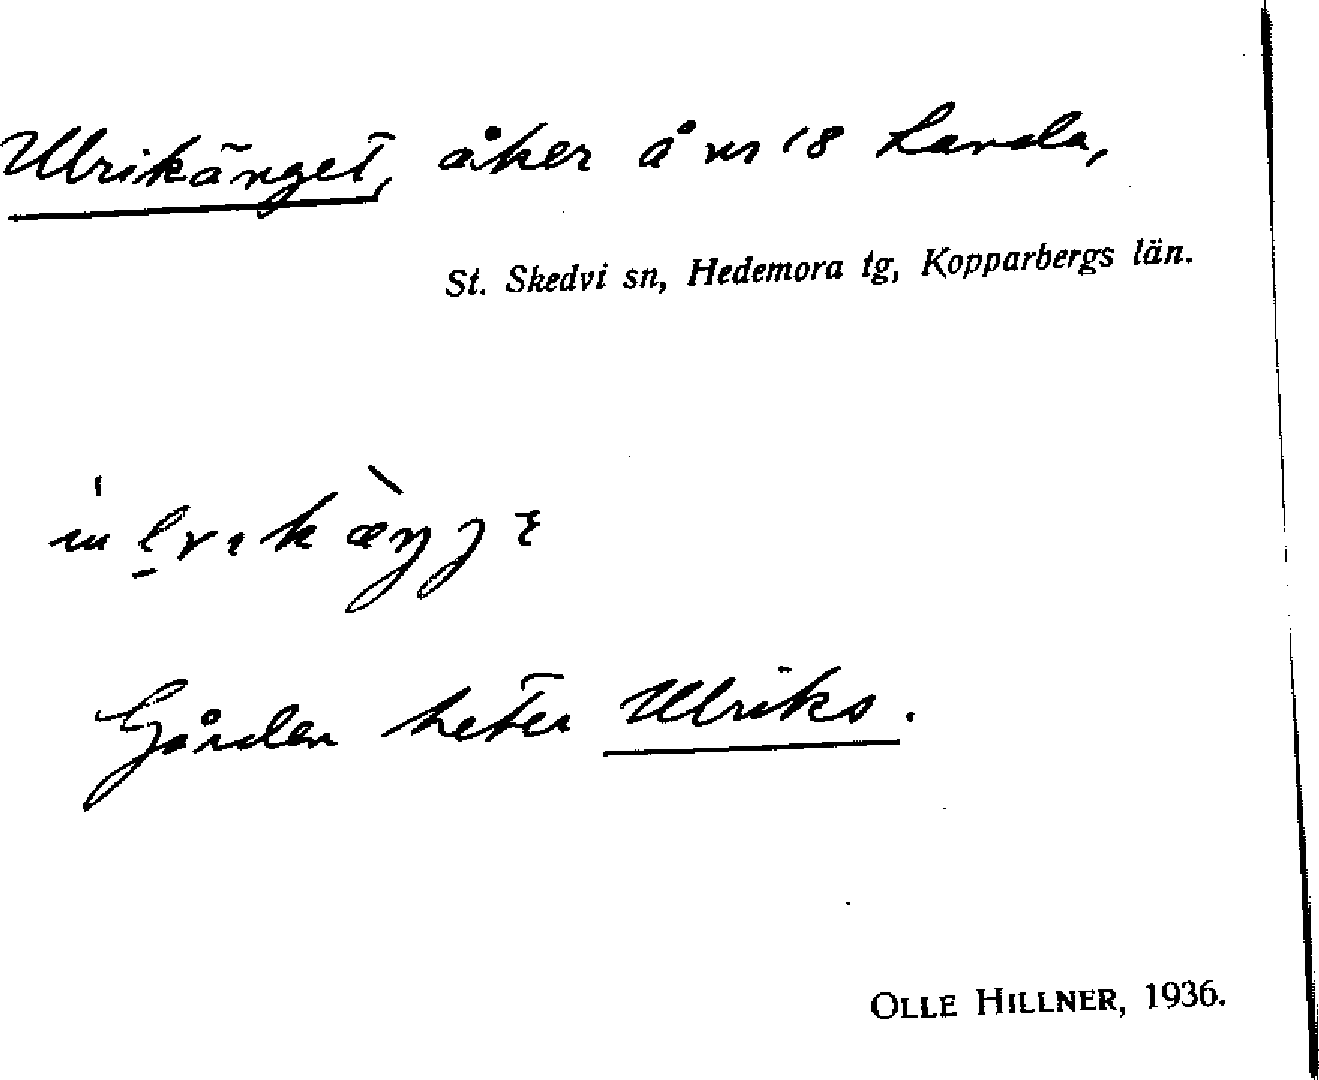 Ulrikänget, åker å nr 18 Landa,
St. Skedvi sn, Hedemora tg, Kopparbergs län.
Gården heter Ulriks.
OLLE HILLNER, 1936.